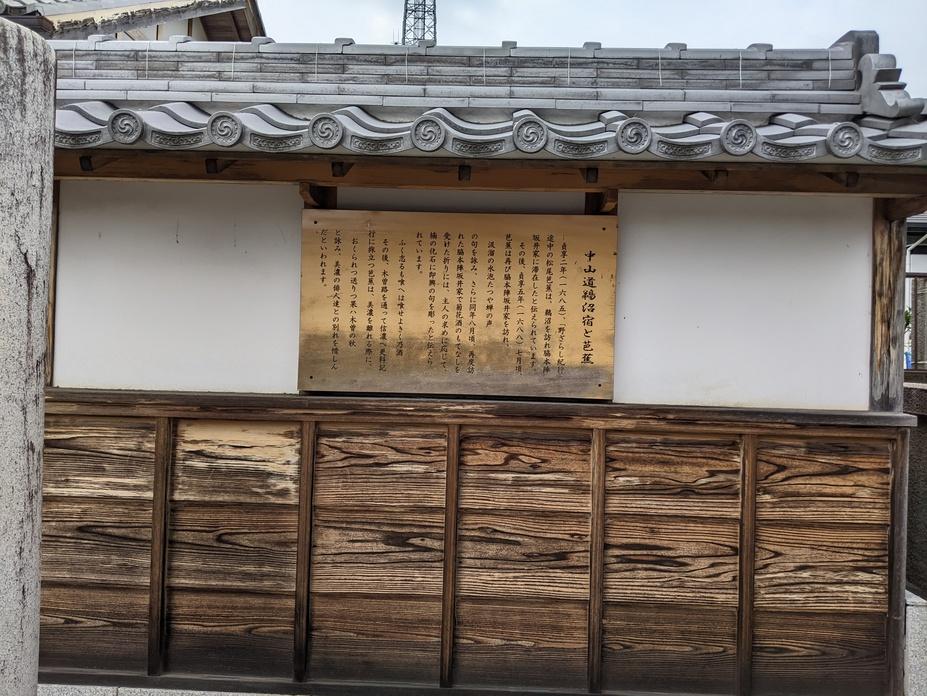 中山道鵜沼宿と芭蕉
貞享二年(一六八五)、「野ざらし紀行」
途中の松尾芭蕉は、鵜沼を訪れ脇本陣
坂井家に滞在したと伝えられています。
その後、貞享五年(一六八八)七月頃、
芭蕉は再び脇本陣坂井家を訪れ、
汲溜の水泡たつや蝉の声
の句を詠み、さらに同年八月頃、再度訪
れた脇本陣坂井家で菊花酒のもてなしを
受けた折りには、主人の求めに応じて、
楠の化石に即興の句を彫ったと伝えら
れています。
ふく志るも喰へは喰せよきく乃酒
その後、木曽路を通って信濃へ更科紀
行に旅立つ芭蕉は、美濃を離れる際に、
おくられつ送りつ果ハ木曽の秋
と詠み、美濃の俳人達との別れを惜しん
だといわれます。